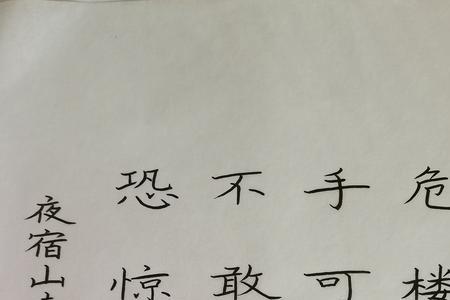 危楼
手可
不敢
恐惊
夜宿山